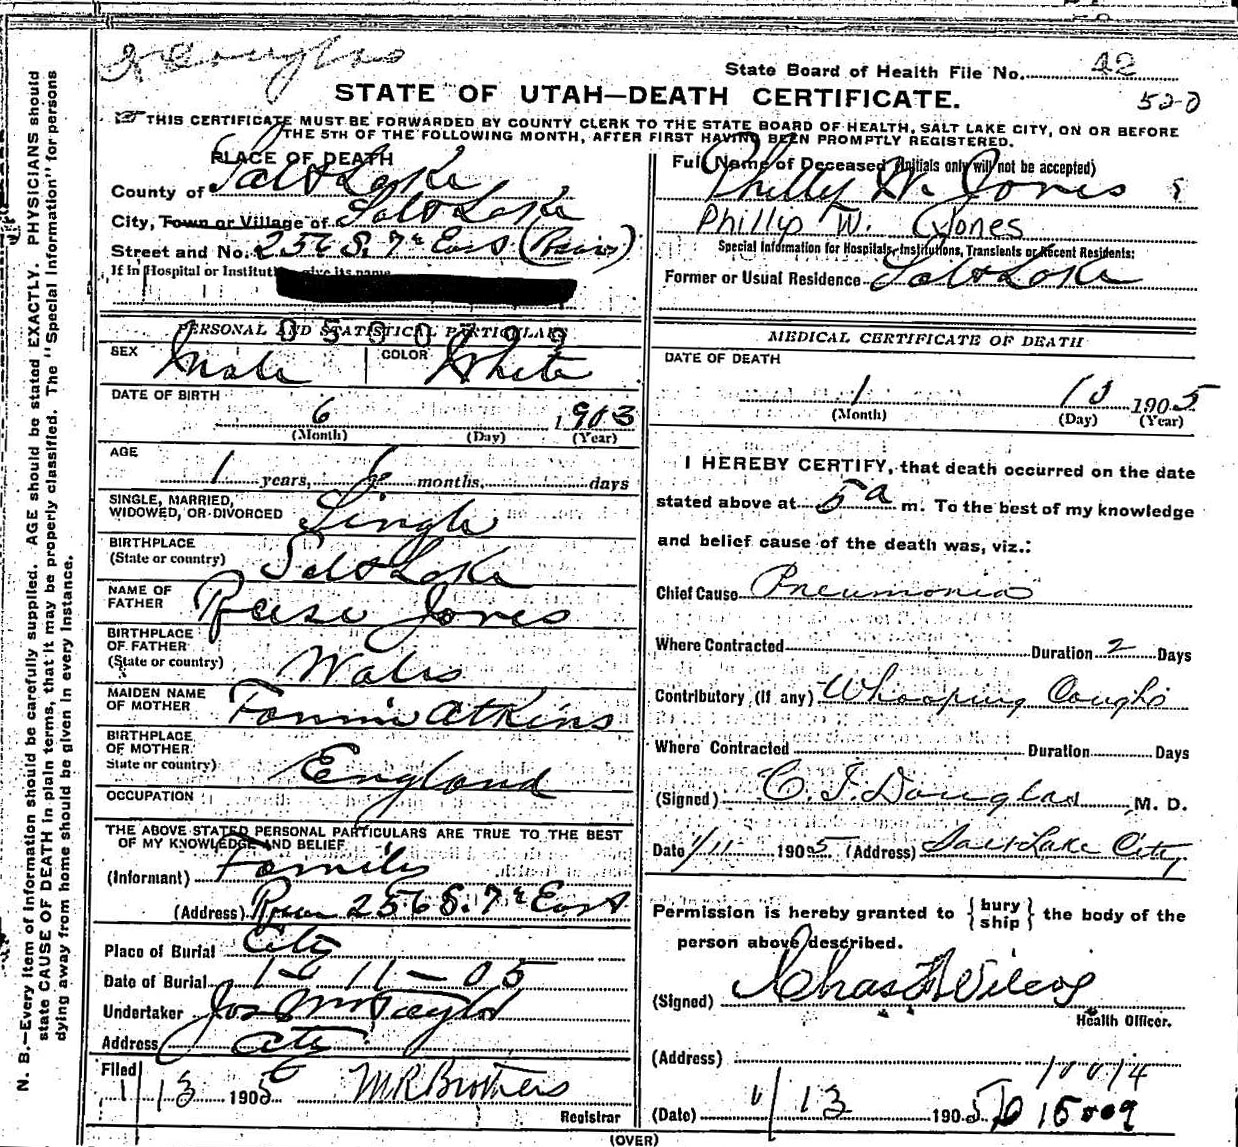 Douglas
State Board of Health File No. 42
STATE OF UTAH—DEATH CERTIFICATE.
520
THIS CERTIFICATE MUST BE FORWARDED BY COUNTY CLERK TO THE STATE BOARD OF HEALTH, SALT LAKE CITY, ON OR BEFORE
THE 5TH OF THE FOLLOWING MONTH, AFTER FIRST HAVING BEEN PROMPTLY REGISTERED.
PLACE OF DEATH
County of Salt Lake
City, Town or Village of Salt Lake
Street and No. 256 S. 7th East (Rear)
If in Hospital or Institution give its name
PERSONAL AND STATISTICAL PARTICULARS
SEX Male COLOR White
DATE OF BIRTH
6 1903
(Month) (Day) (Year)
AGE
1 years, 6 months, days
SINGLE, MARRIED,
WIDOWED, OR DIVORCED Single
BIRTHPLACE
(State or country) Salt Lake
NAME OF
FATHER Reese Jones
BIRTHPLACE
OF FATHER
(State or country) Wales
MAIDEN NAME
OF MOTHER Fannie Atkins
BIRTHPLACE
OF MOTHER
State or country) England
OCCUPATION
THE ABOVE STATED PERSONAL PARTICULARS ARE TRUE TO THE BEST
OF MY KNOWLEDGE AND BELIEF
(Informant) Family
(Address) Rear 256 S. 7th East
Place of Burial City
Date of Burial 1-11-05
Undertaker Jos Wm Taylor
Address City
Filed
1/13 1905 M R Brothers
Registrar
(OVER)
Full Name of Deceased (Initials only will not be accepted)
Phillip W. Jones
Phillip W. Jones
Special Information for Hospitals, Institutions, Transients or Recent Residents:
Former or Usual Residence Salt Lake
MEDICAL CERTIFICATE OF DEATH
DATE OF DEATH
1 10 1905
(Month) (Day) (Year)
I HEREBY CERTIFY, that death occurred on the date
stated above at 5 a m. To the best of my knowledge
and belief cause of the death was, viz.:
Chief Cause Pneumonia
Where Contracted Duration 2 Days
Contributory (If any) Whooping Cough
Where Contracted Duration Days
(Signed) C. F. Douglas M. D.
Date 1/11 1905 (Address) Salt Lake City
Permission is hereby granted to {bury ship} the body of the
person above described.
(Signed) Chas F Wilcox
Health Officer.
(Address)
(Date) 1/13 1905
15009
N. B.—Every item of information should be carefully supplied. AGE should be stated EXACTLY. PHYSICIANS should
state CAUSE OF DEATH in plain terms, that it may be properly classified. The "Special Information" for persons
dying away from home should be given in every instance.